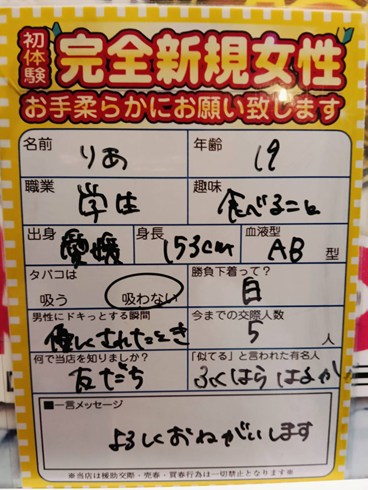 初体験
完全新規女性
お手柔らかにお願い致します
名前 りあ 年齢 19
職業 学生 趣味 食べること
出身 愛媛 身長 153cm 血液型 AB 型
タバコは 吸う 吸わない 勝負下着って? 白
男性にドキっとする瞬間 優しくされたとき 今までの交際人数 5 人
何で当店を知りましたか? 友だち 「似てる」と言われた有名人 ふくはら はるか
■一言メッセージ
よろしくおねがいします
※当店は援助交際・売春・買春行為は一切禁止となります※